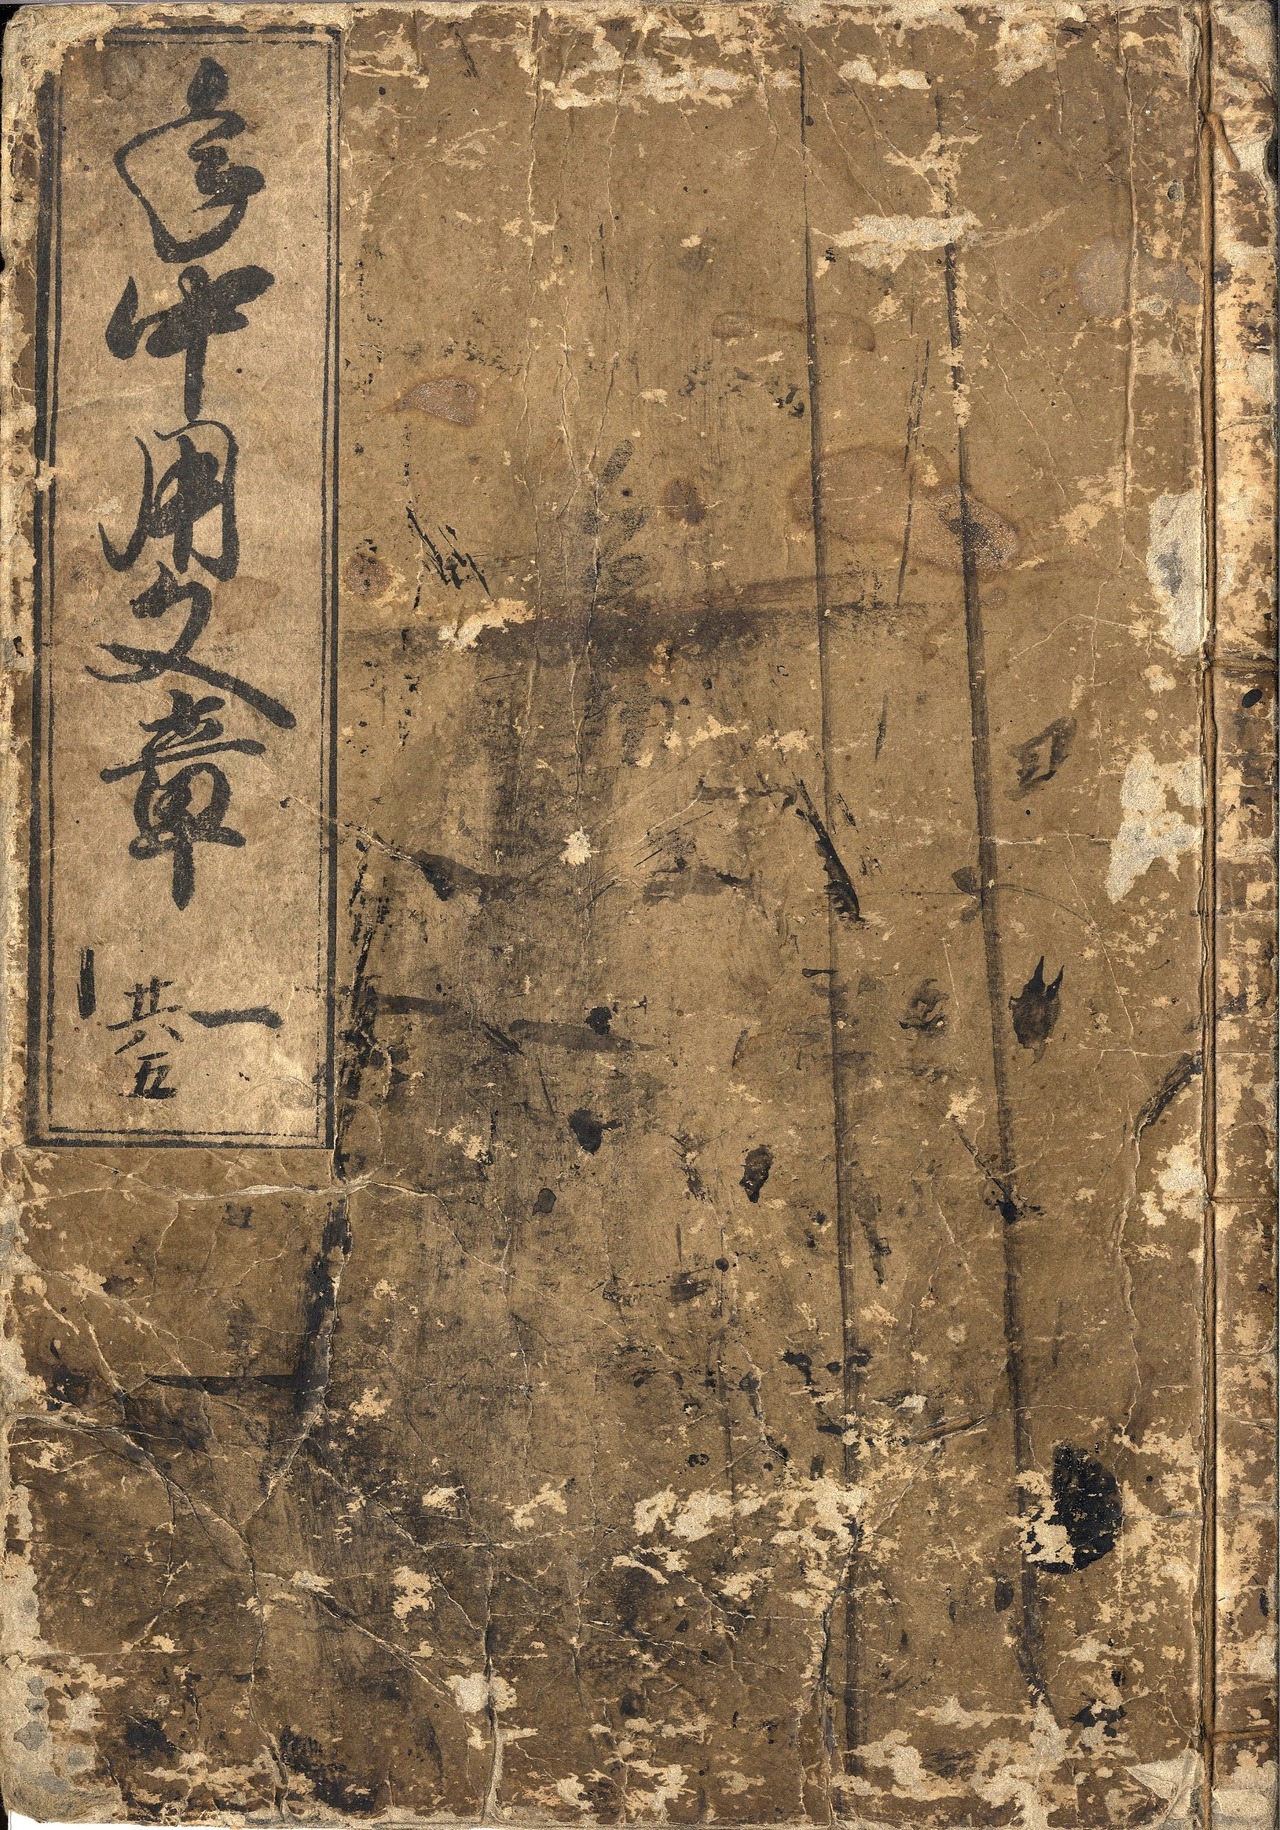 年中用文章
一
共五